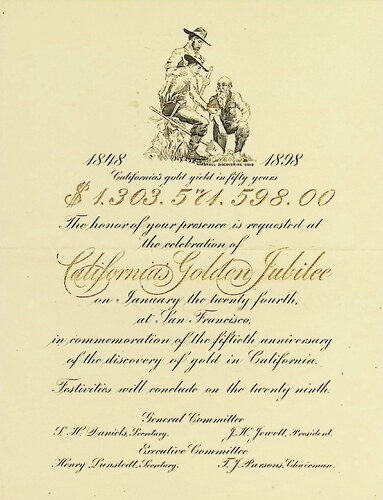 MARSHALL DISCOVERING GOLD
1848 1898
California's gold yield in fifty years
$1.303.571.598.00
The honor of your presence is requested at
the celebration of
California's Golden Jubilee
on January the twenty fourth,
at San Francisco,
in commemoration of the fiftieth anniversary
of the discovery of gold in California.
Festivities will conclude on the twenty ninth.
General Committee
S. H. Daniels, Secretary. J. H. Jewett, President.
Executive Committee
Henry Lunstedt, Secretary. F. J. Parsons, Chairman.